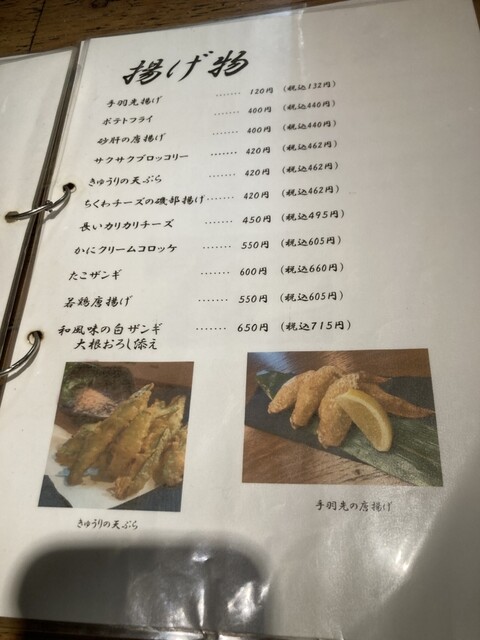 揚げ物
手羽先揚げ ……. 120円 (税込132円)
ポテトフライ ……. 400円 (税込440円)
砂肝の唐揚げ ……. 400円 (税込440円)
サクサクブロッコリー …….. 420円 (税込462円)
きゅうりの天ぷら …….. 420円 (税込462円)
ちくわチーズの磯部揚げ …….. 420円 (税込462円)
長いカリカリチーズ …….. 450円 (税込495円)
かにクリームコロッケ …….. 550円 (税込605円)
たこザンギ …….. 600円 (税込660円)
若鶏唐揚げ …….. 550円 (税込605円)
和風味の白ザンギ …….. 650円 (税込715円)
大根おろし添え
手羽先の唐揚げ
きゅうりの天ぷら